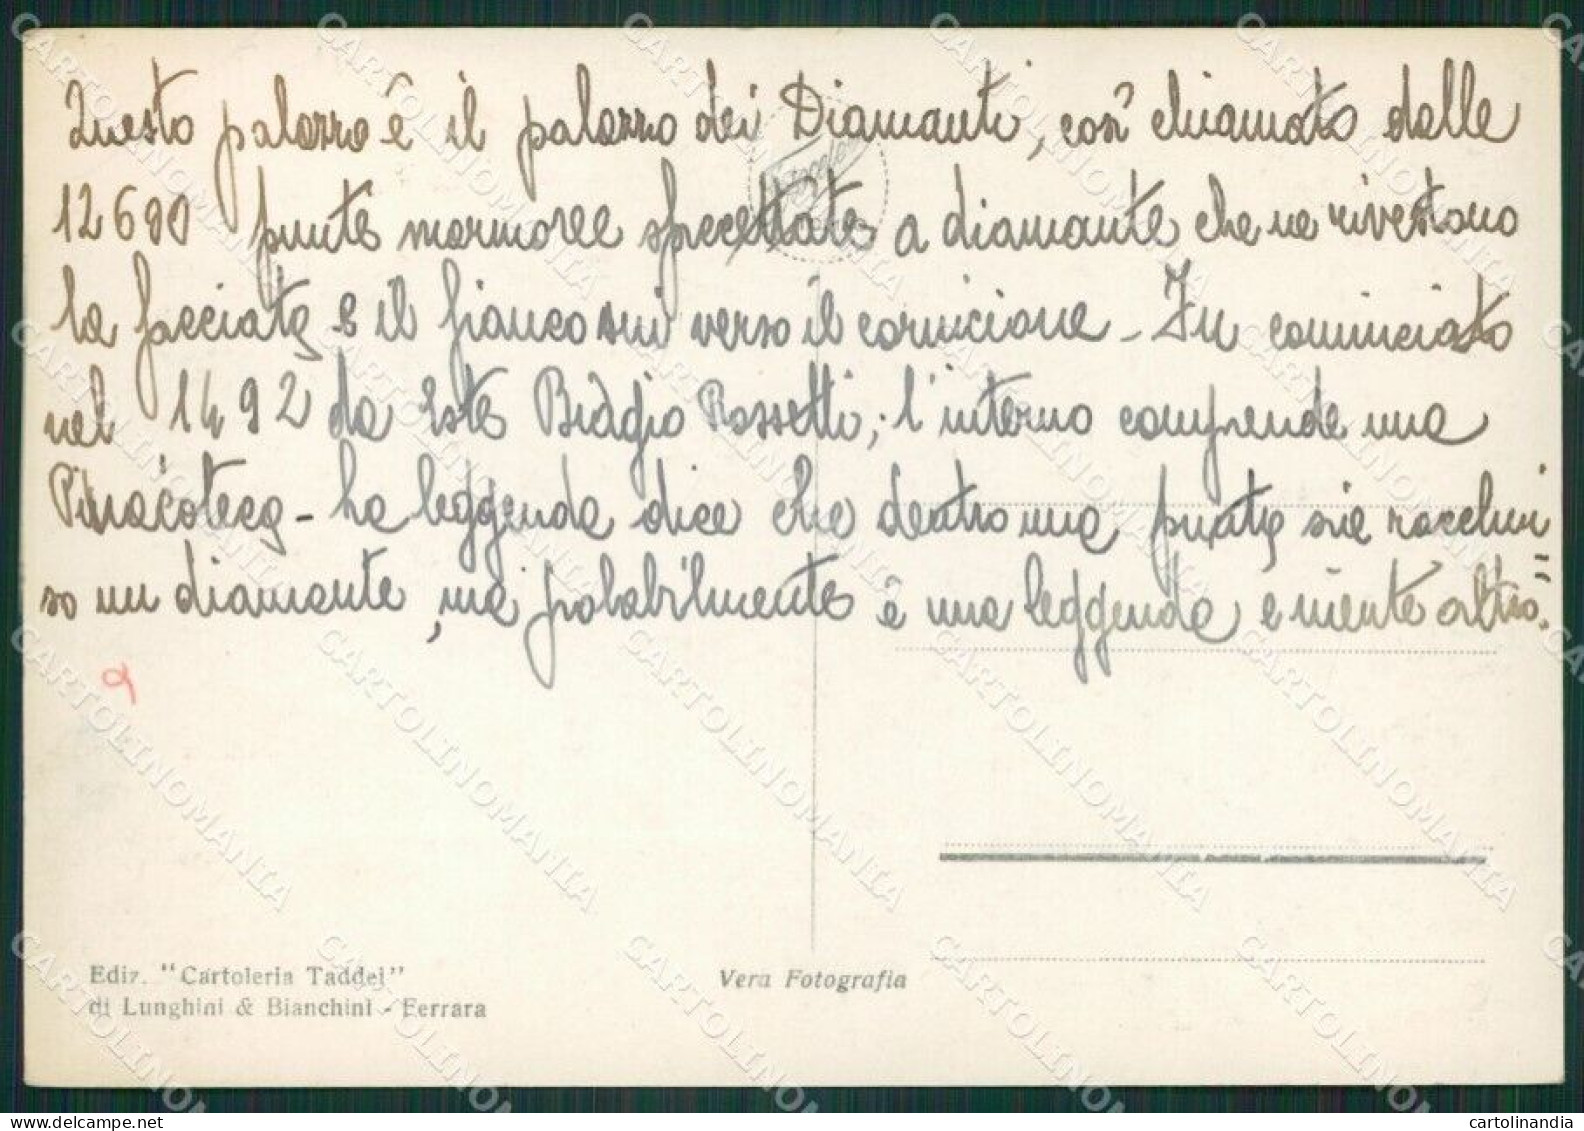 Questo palazzo è il palazzo dei Diamanti, così chiamato dalle
12600 punte marmoree sfaccettate a diamante che ne rivestono
la facciata e il fianco sui verso il cornicione - Fu cominciato
nel 1492 da Este Biagio Rossetti; l'interno comprende una
Pinacoteca - La leggenda dice che dentro una punta sia racchiu=
so un diamante, ma probabilmente è una leggenda e niente altro.
Ediz. "Cartoleria Taddei"
di Lunghini & Bianchini - Ferrara
Vera Fotografia
CARTOLINOMANIA
cartolinandia